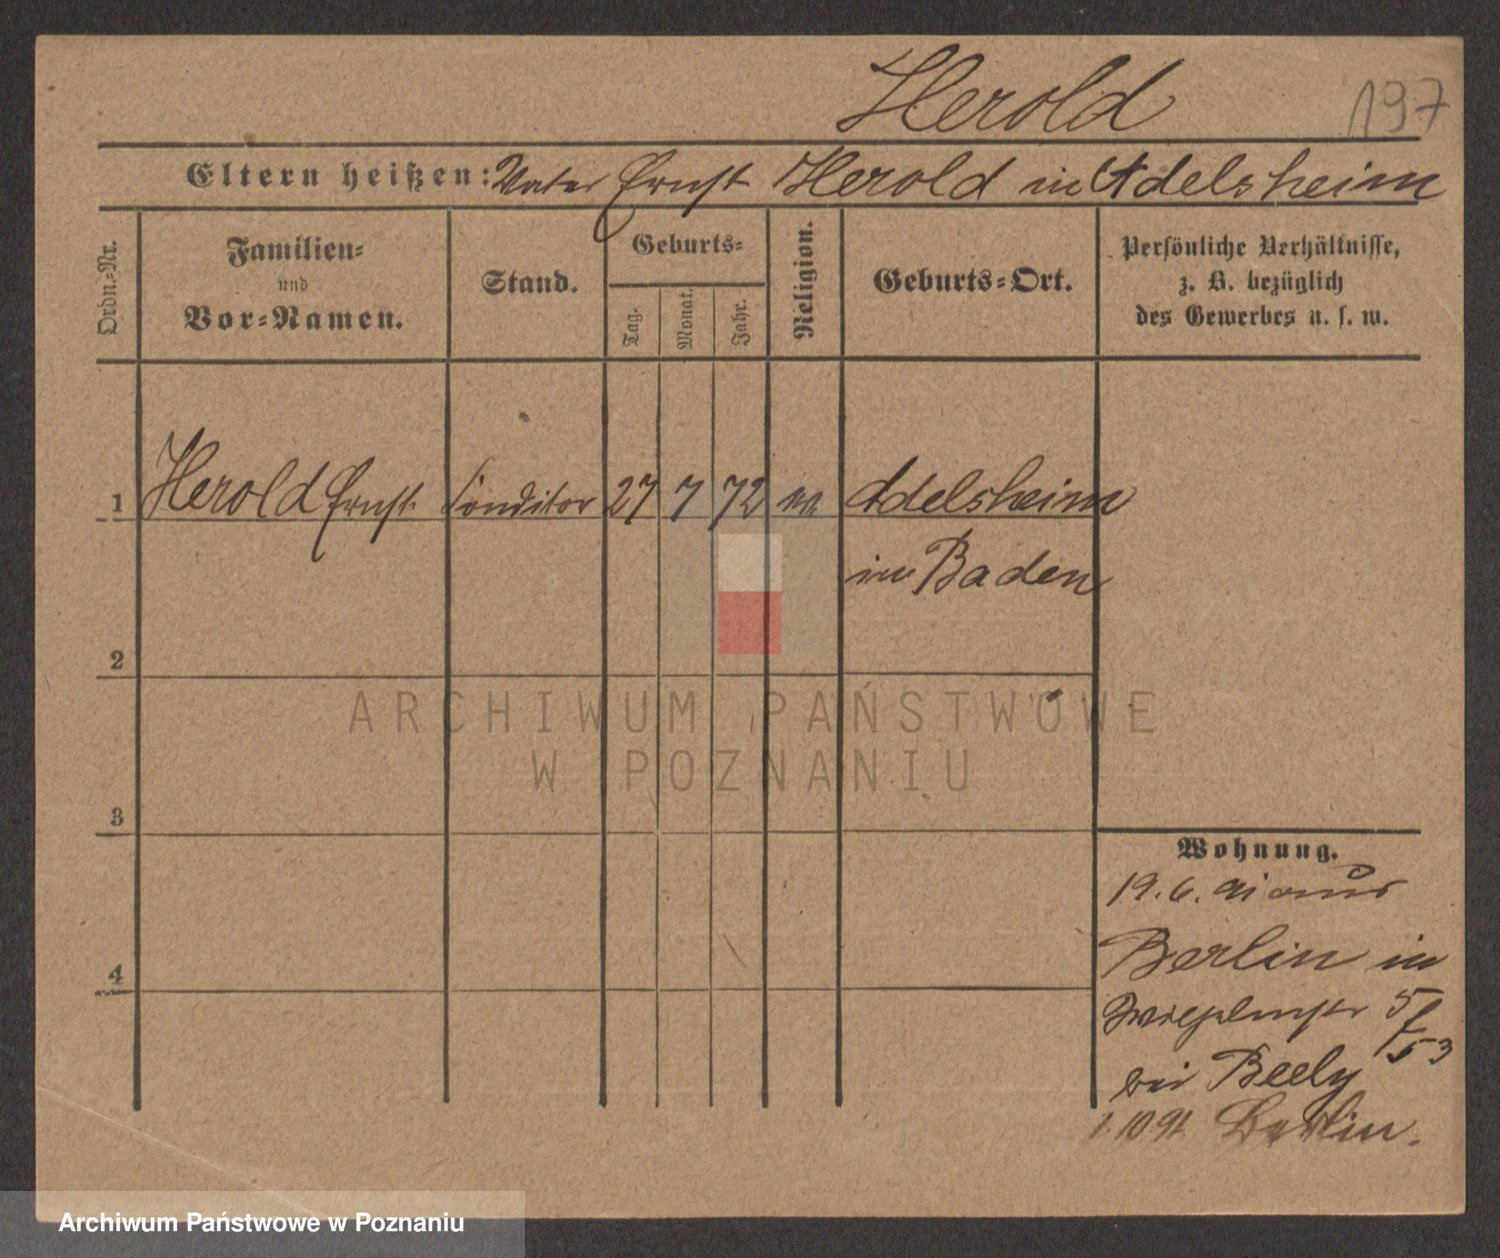 Herold
197
Eltern heißen: Vater Ernst Herold in Adelsheim
Ordn.-Nr.
Familien-
und
Vor-Namen.
Stand.
Geburts-
Tag.
Monat.
Jahr.
Religion.
Geburts-Ort.
Persönliche Verhältnisse,
z. B. bezüglich
des Gewerbes u. s. w.
1 Herold Ernst Conditor 27 7 72 Adelsheim
in Baden
2
3
4
Wohnung.
19.6.91 aus
Berlin in
5/
53
bei Beely
1.10 91 Berlin.
ARCHIWUM PAŃSTWOWE
W POZNANIU
Archiwum Państwowe w Poznaniu